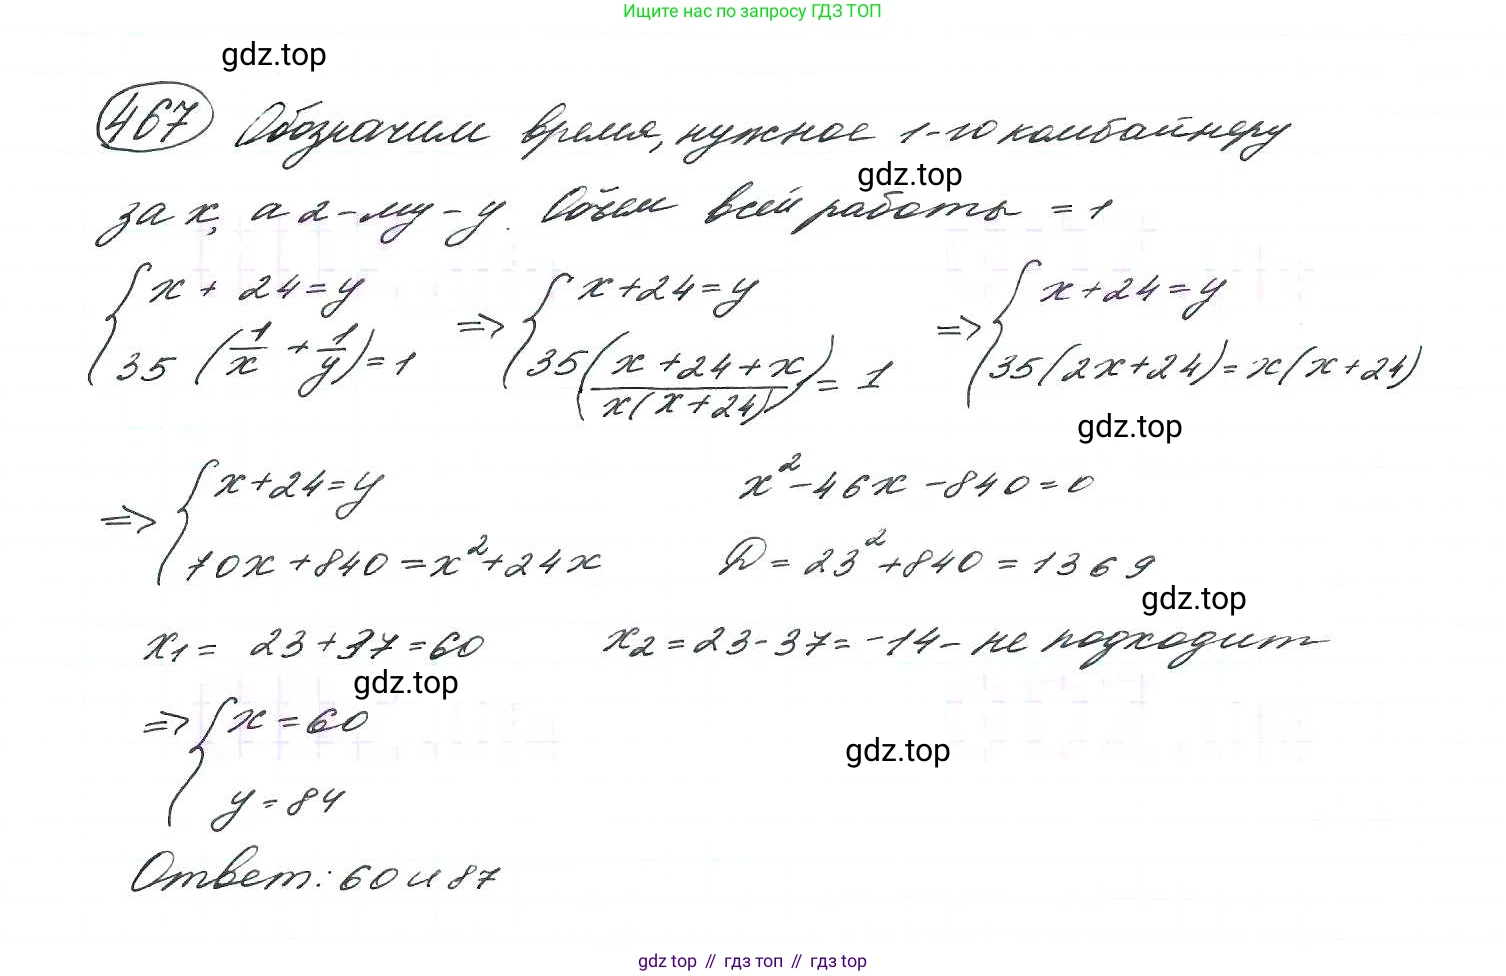 Ищите нас по запросу ГДЗ ТОП
gdz.top
467 Обозначим время, нужное 1-ю комбайнеру
gdz.top
за x, а 2-му - y. Объем всей работы = 1
{ x + 24 = y => { x + 24 = y => { x + 24 = y
35 (1/x + 1/y) = 1 35 ((x + 24 + x)/(x(x + 24))) = 1 35(2x + 24) = x(x + 24)
gdz.top
=> { x + 24 = y x² - 46x - 840 = 0
70x + 840 = x² + 24x D = 23² + 840 = 1369
gdz.top
x₁ = 23 + 37 = 60 x₂ = 23 - 37 = -14 - не подходит
gdz.top
=> { x = 60
gdz.top
y = 84
Ответ: 60 и 87
gdz top // гдз топ // гдз top